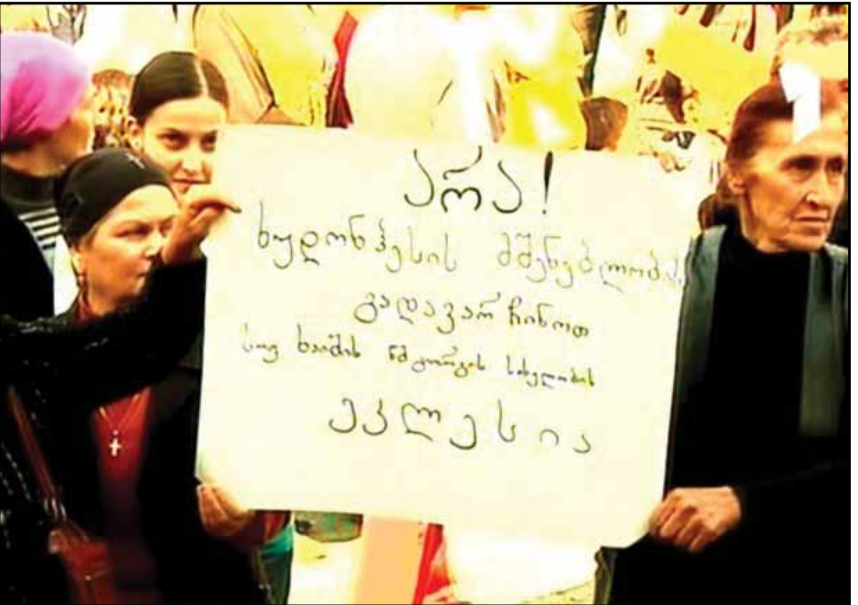 არა!
ხუდონჰესის მშენებლობას
გადავარჩინოთ
სოფ ხაიშის წმ გიორგის სახელობის
ეკლესია
1